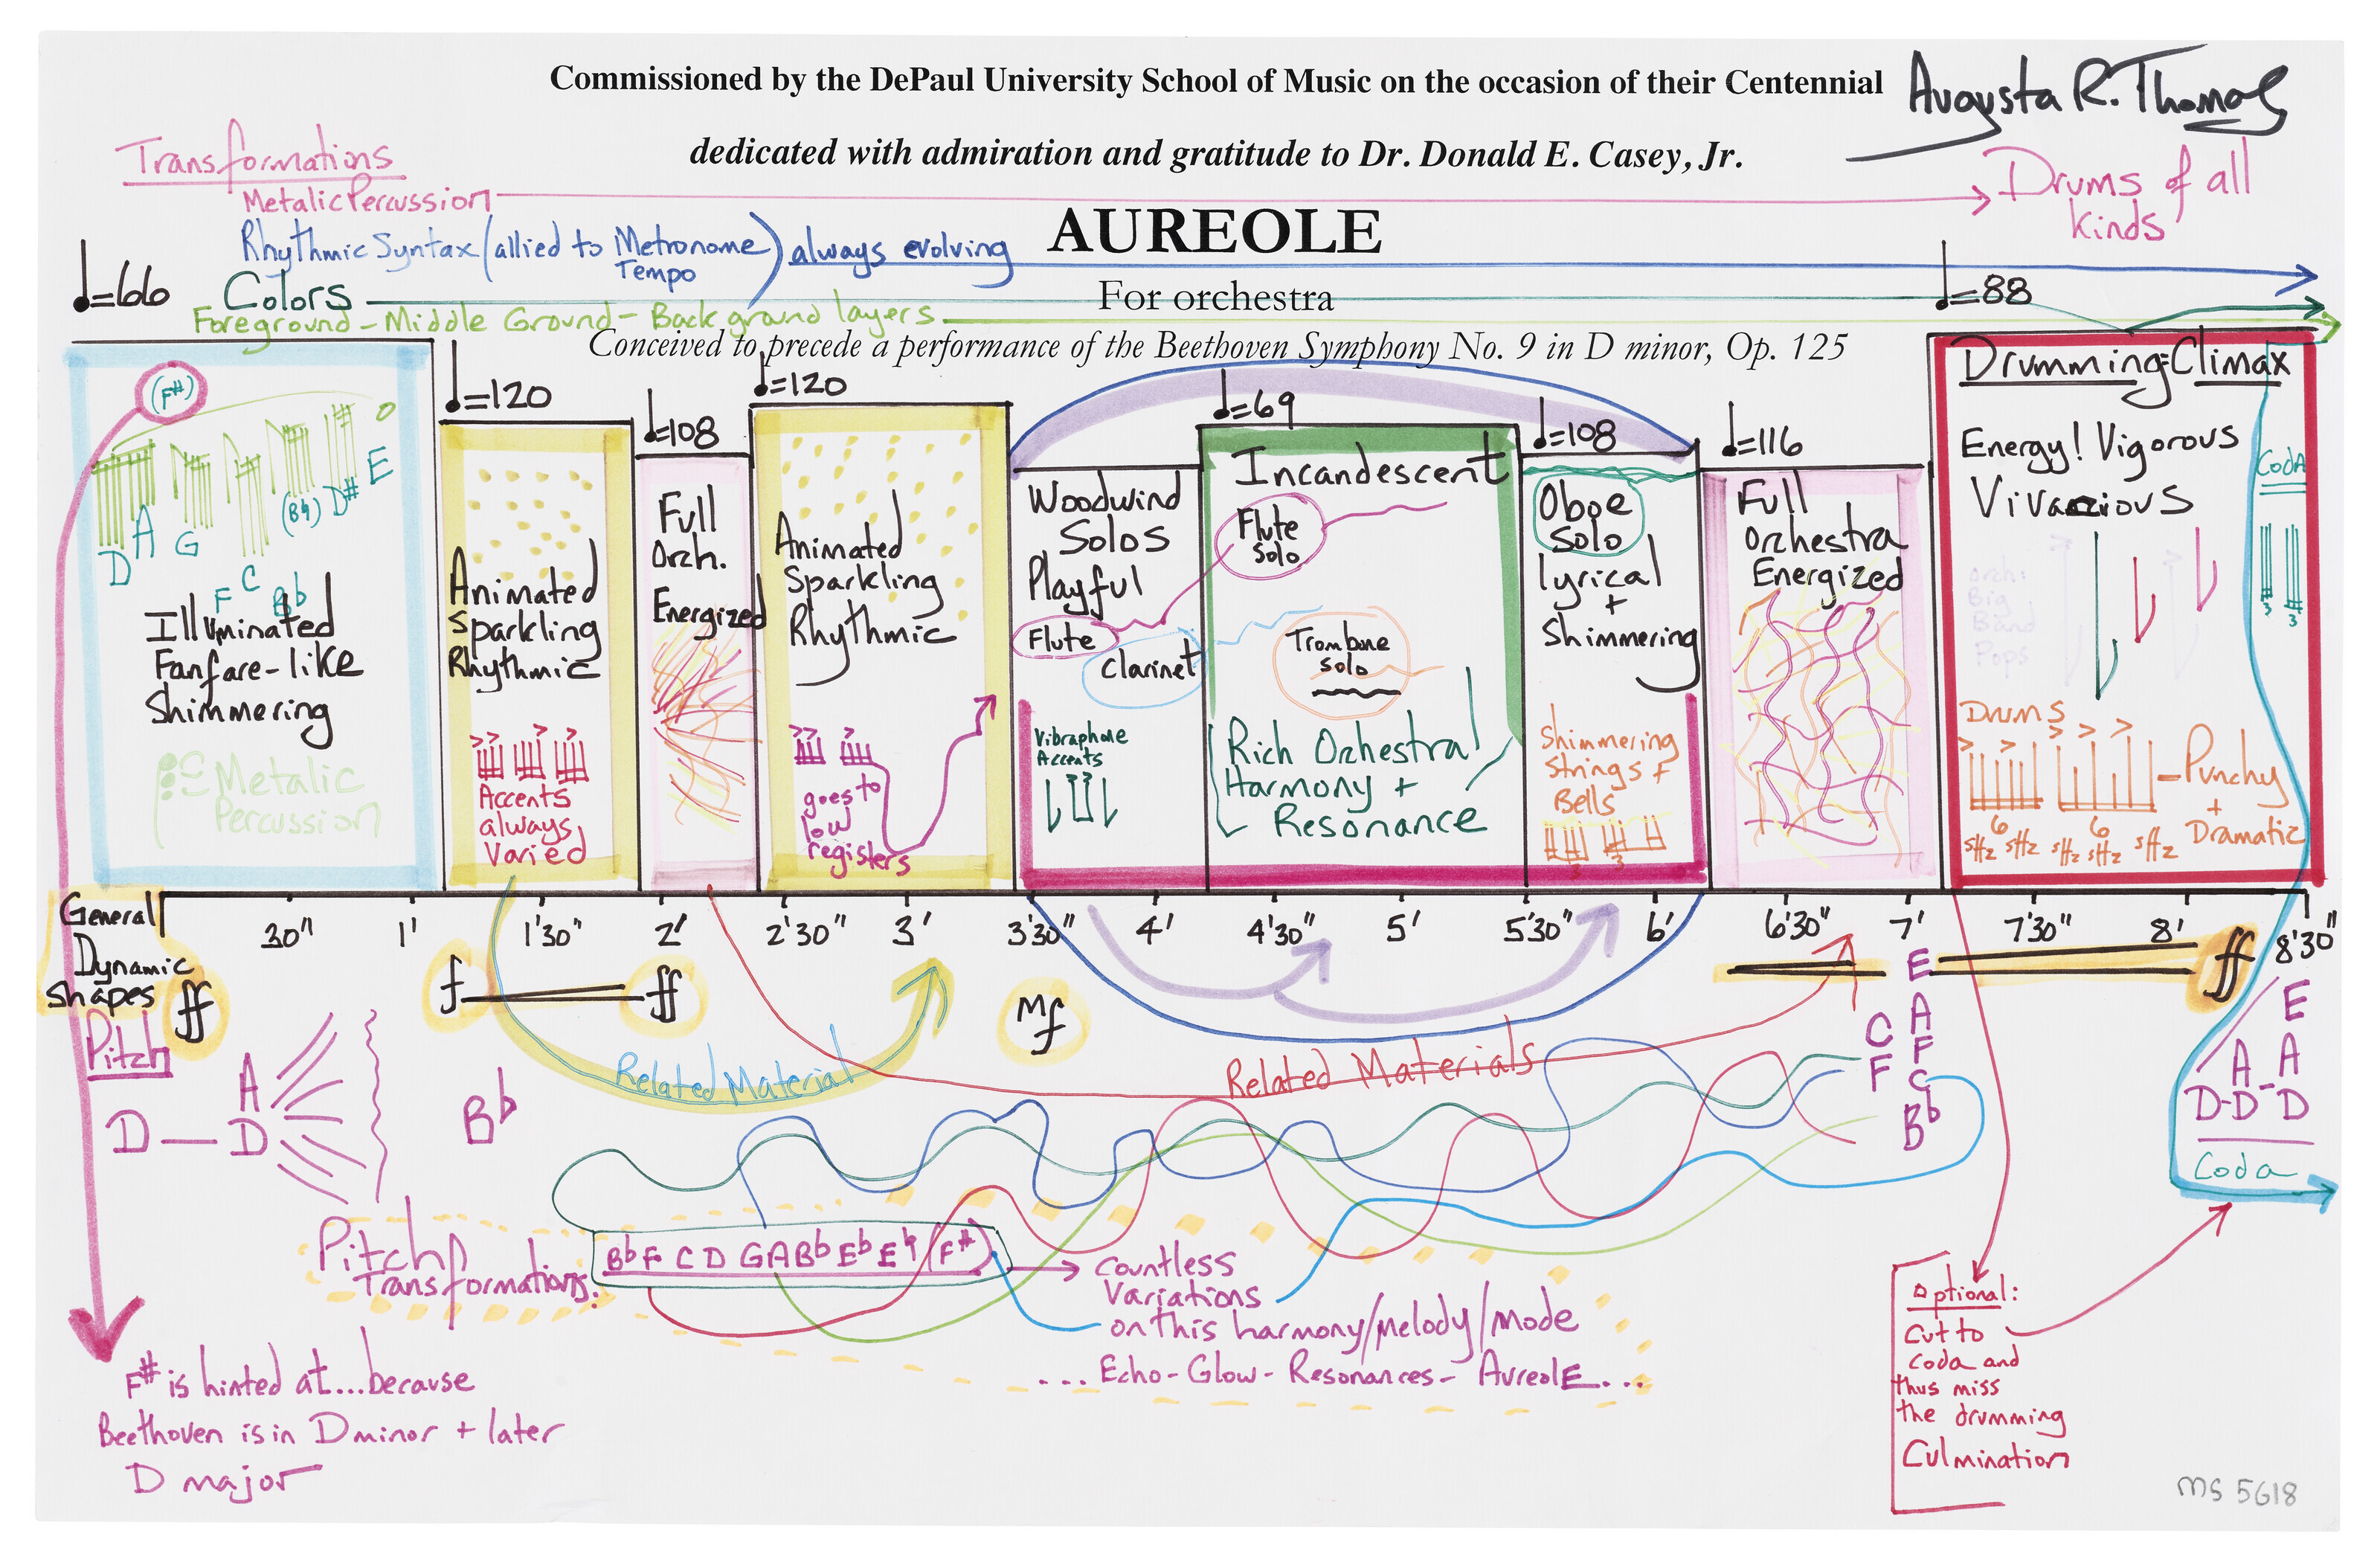 Commissioned by the DePaul University School of Music on the occasion of their Centennial
Augusta R. Thomas
dedicated with admiration and gratitude to Dr. Donald E. Casey, Jr.
Transformations
Metalic Percussion
Drums of all
kinds
AUREOLE
Rhythmic Syntax (allied to Metronome Tempo) always evolving
♩=66
Colors
For orchestra
♩=88
Foreground - Middle Ground - Back ground layers
Conceived to precede a performance of the Beethoven Symphony No. 9 in D minor, Op. 125
(F#)
D A G F C Bb (B♮) D# E
Illuminated
Fanfare-like
Shimmering
Metalic
Percussion
♩=120
Animated
Sparkling
Rhythmic
Accents
always
Varied
♩=108
Full
Orch.
Energized
♩=120
Animated
Sparkling
Rhythmic
goes to
low
registers
Woodwind
Solos
Playful
Flute
Clarinet
Vibraphone
Accents
♩=69
Incandescent
Flute
Solo
Trombone
Solo
Rich Orchestral
Harmony +
Resonance
♩=108
Oboe
Solo
lyrical
+
Shimmering
Shimmering
Strings +
Bells
3 3
♩=116
Full
Orchestra
Energized
Drumming=Climax
Energy! Vigorous
Vivacious
Orch:
Big
Band
Pops
Drums
6 6
sfz sfz sfz sfz sfz
Punchy
+
Dramatic
Coda
3 3
General
Dynamic
Shapes
30" 1' 1'30" 2' 2'30" 3' 3'30" 4' 4'30" 5' 5'30" 6' 6'30" 7' 7'30" 8' 8'30"
ff f ff mf ff
Related Material
Related Materials
Pitch
D — D
A
Bb
C
F
E
A
F
C
Bb
E
A A
D-D-D
Coda
Pitch
Transformations:
Bb F C D G A Bb Eb E♮ (F#)
Countless
Variations
on this harmony/melody/mode
... Echo - Glow - Resonances - AureolE...
F# is hinted at...because
Beethoven is in D minor + later
D major
Optional:
Cut to
coda and
thus miss
the drumming
Culmination
MS 5618